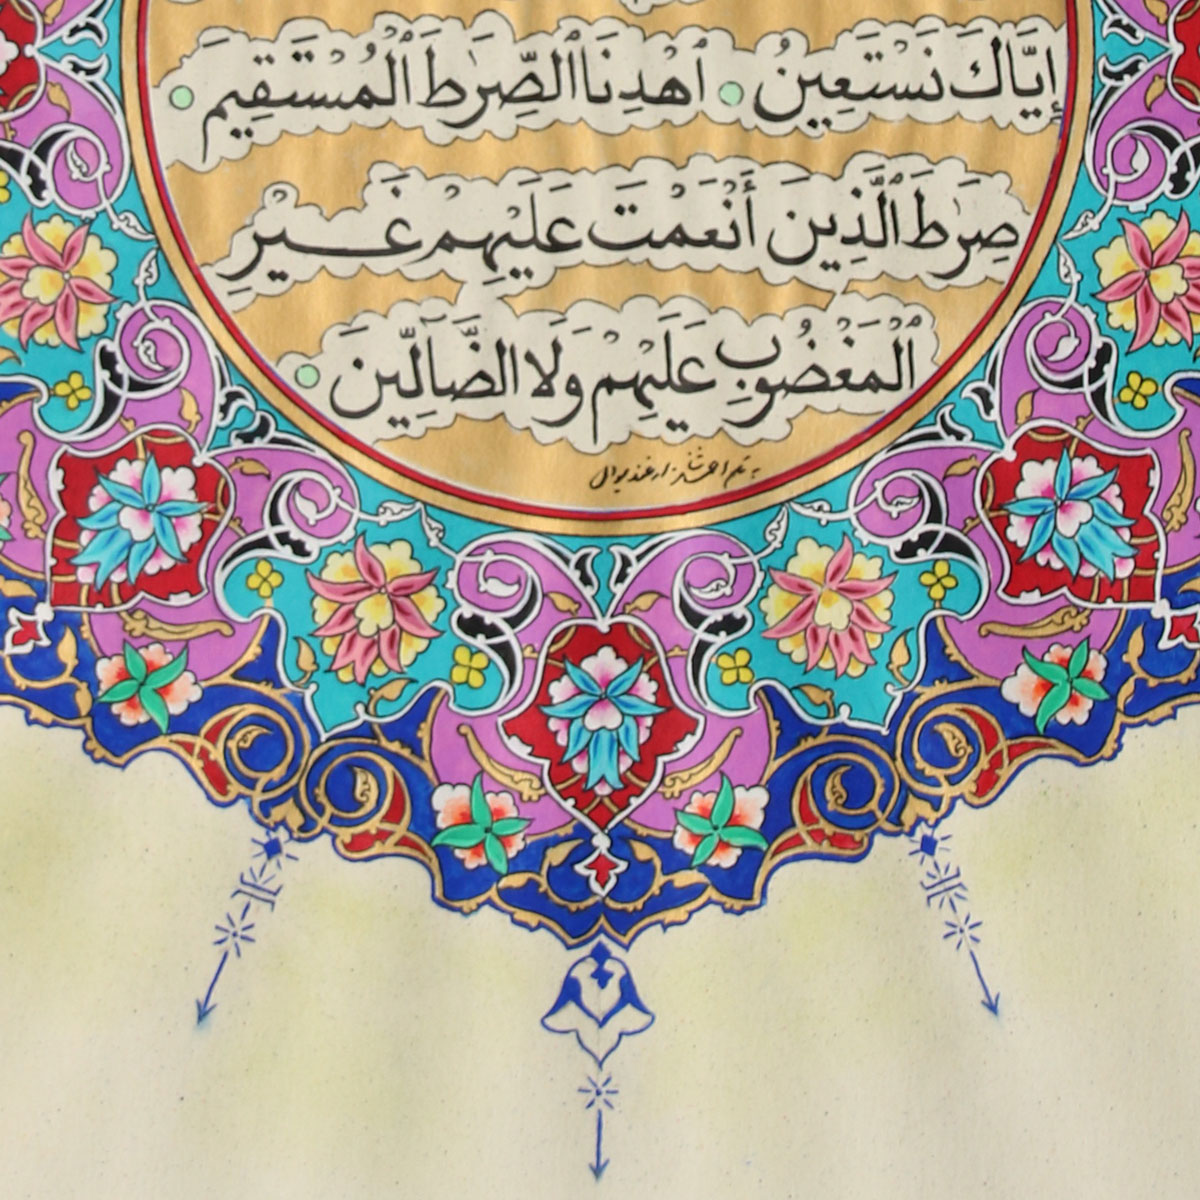 إِيَّاكَ نَسْتَعِينُ ۝ ٱهْدِنَا ٱلصِّرَٰطَ ٱلْمُسْتَقِيمَ ۝
صِرَٰطَ ٱلَّذِينَ أَنْعَمْتَ عَلَيْهِمْ غَيْرِ
ٱلْمَغْضُوبِ عَلَيْهِمْ وَلَا ٱلضَّآلِّينَ ۝